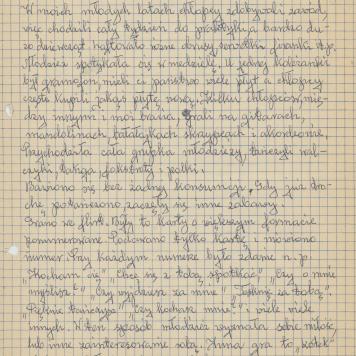 W moich młodych latach chłopcy zdobywali zawód,
więc chodzili cały tydzień do praktyki, a bardzo du-
żo dziewcząt haftowało różne obrusy, serwetki, firanki itp.
Młodzież spotykała się w niedziele. U jednej koleżanki
był gramofon, mieli ci państwo wiele płyt a chłopcy
często kupili jakąś płytę nową. Kilku chłopców, mię-
dzy innymi i moi bracia, grali na gitarach,
mandolinach, bałałajkach skrzypcach i akordeonie.
Przychodziła cała grupka młodzieży, tańczyli wal-
czyki, tanga, fokstroty i polki.
Bawiono się bez żadnej konsumpcji. Gdy już tro-
chę potańczono, zaczęły się inne zabawy.
Grano we flirt. Były to karty o większym formacie
ponumerowane. Podawano tylko kartę i mówiono
numer. Przy każdym numerze było zdanie n.p.
"Kocham cię", "Chcę się z tobą spotykać", "Czy o mnie
myślisz?" "Czy wyjdziesz za mnie" "Tęsknię za tobą",
"Pięknie tańczysz", "Czy kochasz mnie?" i wiele wiele
innych. W ten sposób młodzież wyznała sobie miłość,
lub inne zainteresowanie sobą. Inna gra to "kółek"